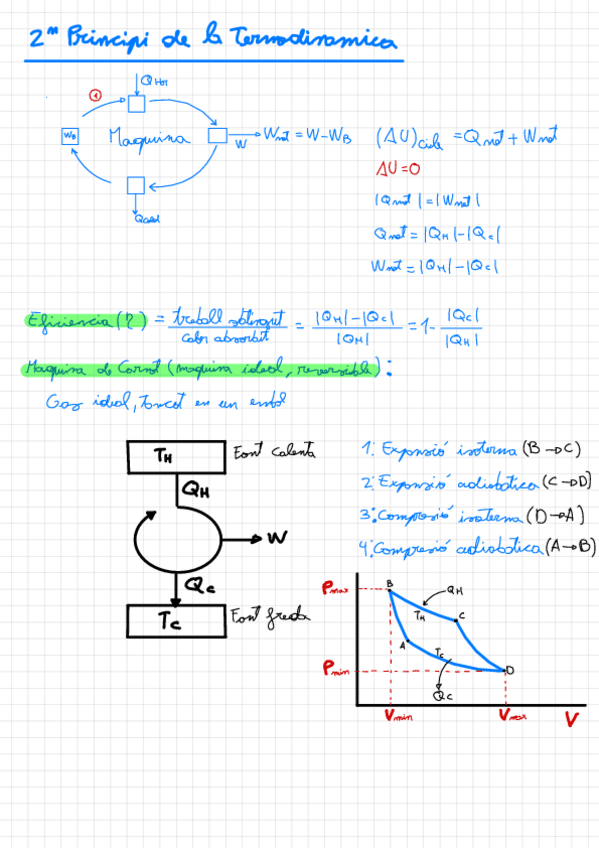 2ⁿ Principi de la Termodinamica
Q Hot
1
WB
Maquina
W
Wnet = W - WB
Qcold
(ΔU)cicle = Qnet + Wnet
ΔU = 0
|Qnet| = |Wnet|
Qnet = |QH| - |Qc|
Wnet = |QH| - |Qc|
Eficiencia (η) = treball obtingut / calor absorbit = |QH| - |Qc| / |QH| = 1 - |Qc| / |QH|
Maquina de Carnot (maquina ideal, reversible):
Gas ideal, tancat en un embol
TH
Font calenta
QH
W
Qc
Tc
Font freda
1: Expansió isoterma (B→C)
2: Expansió adiabàtica (C→D)
3: Compresió isoterma (D→A)
4: Compresió adiabàtica (A→B)
Pmax
B
QH
TH
C
A
Tc
Pmin
D
Qc
Vmin
Vmax
V